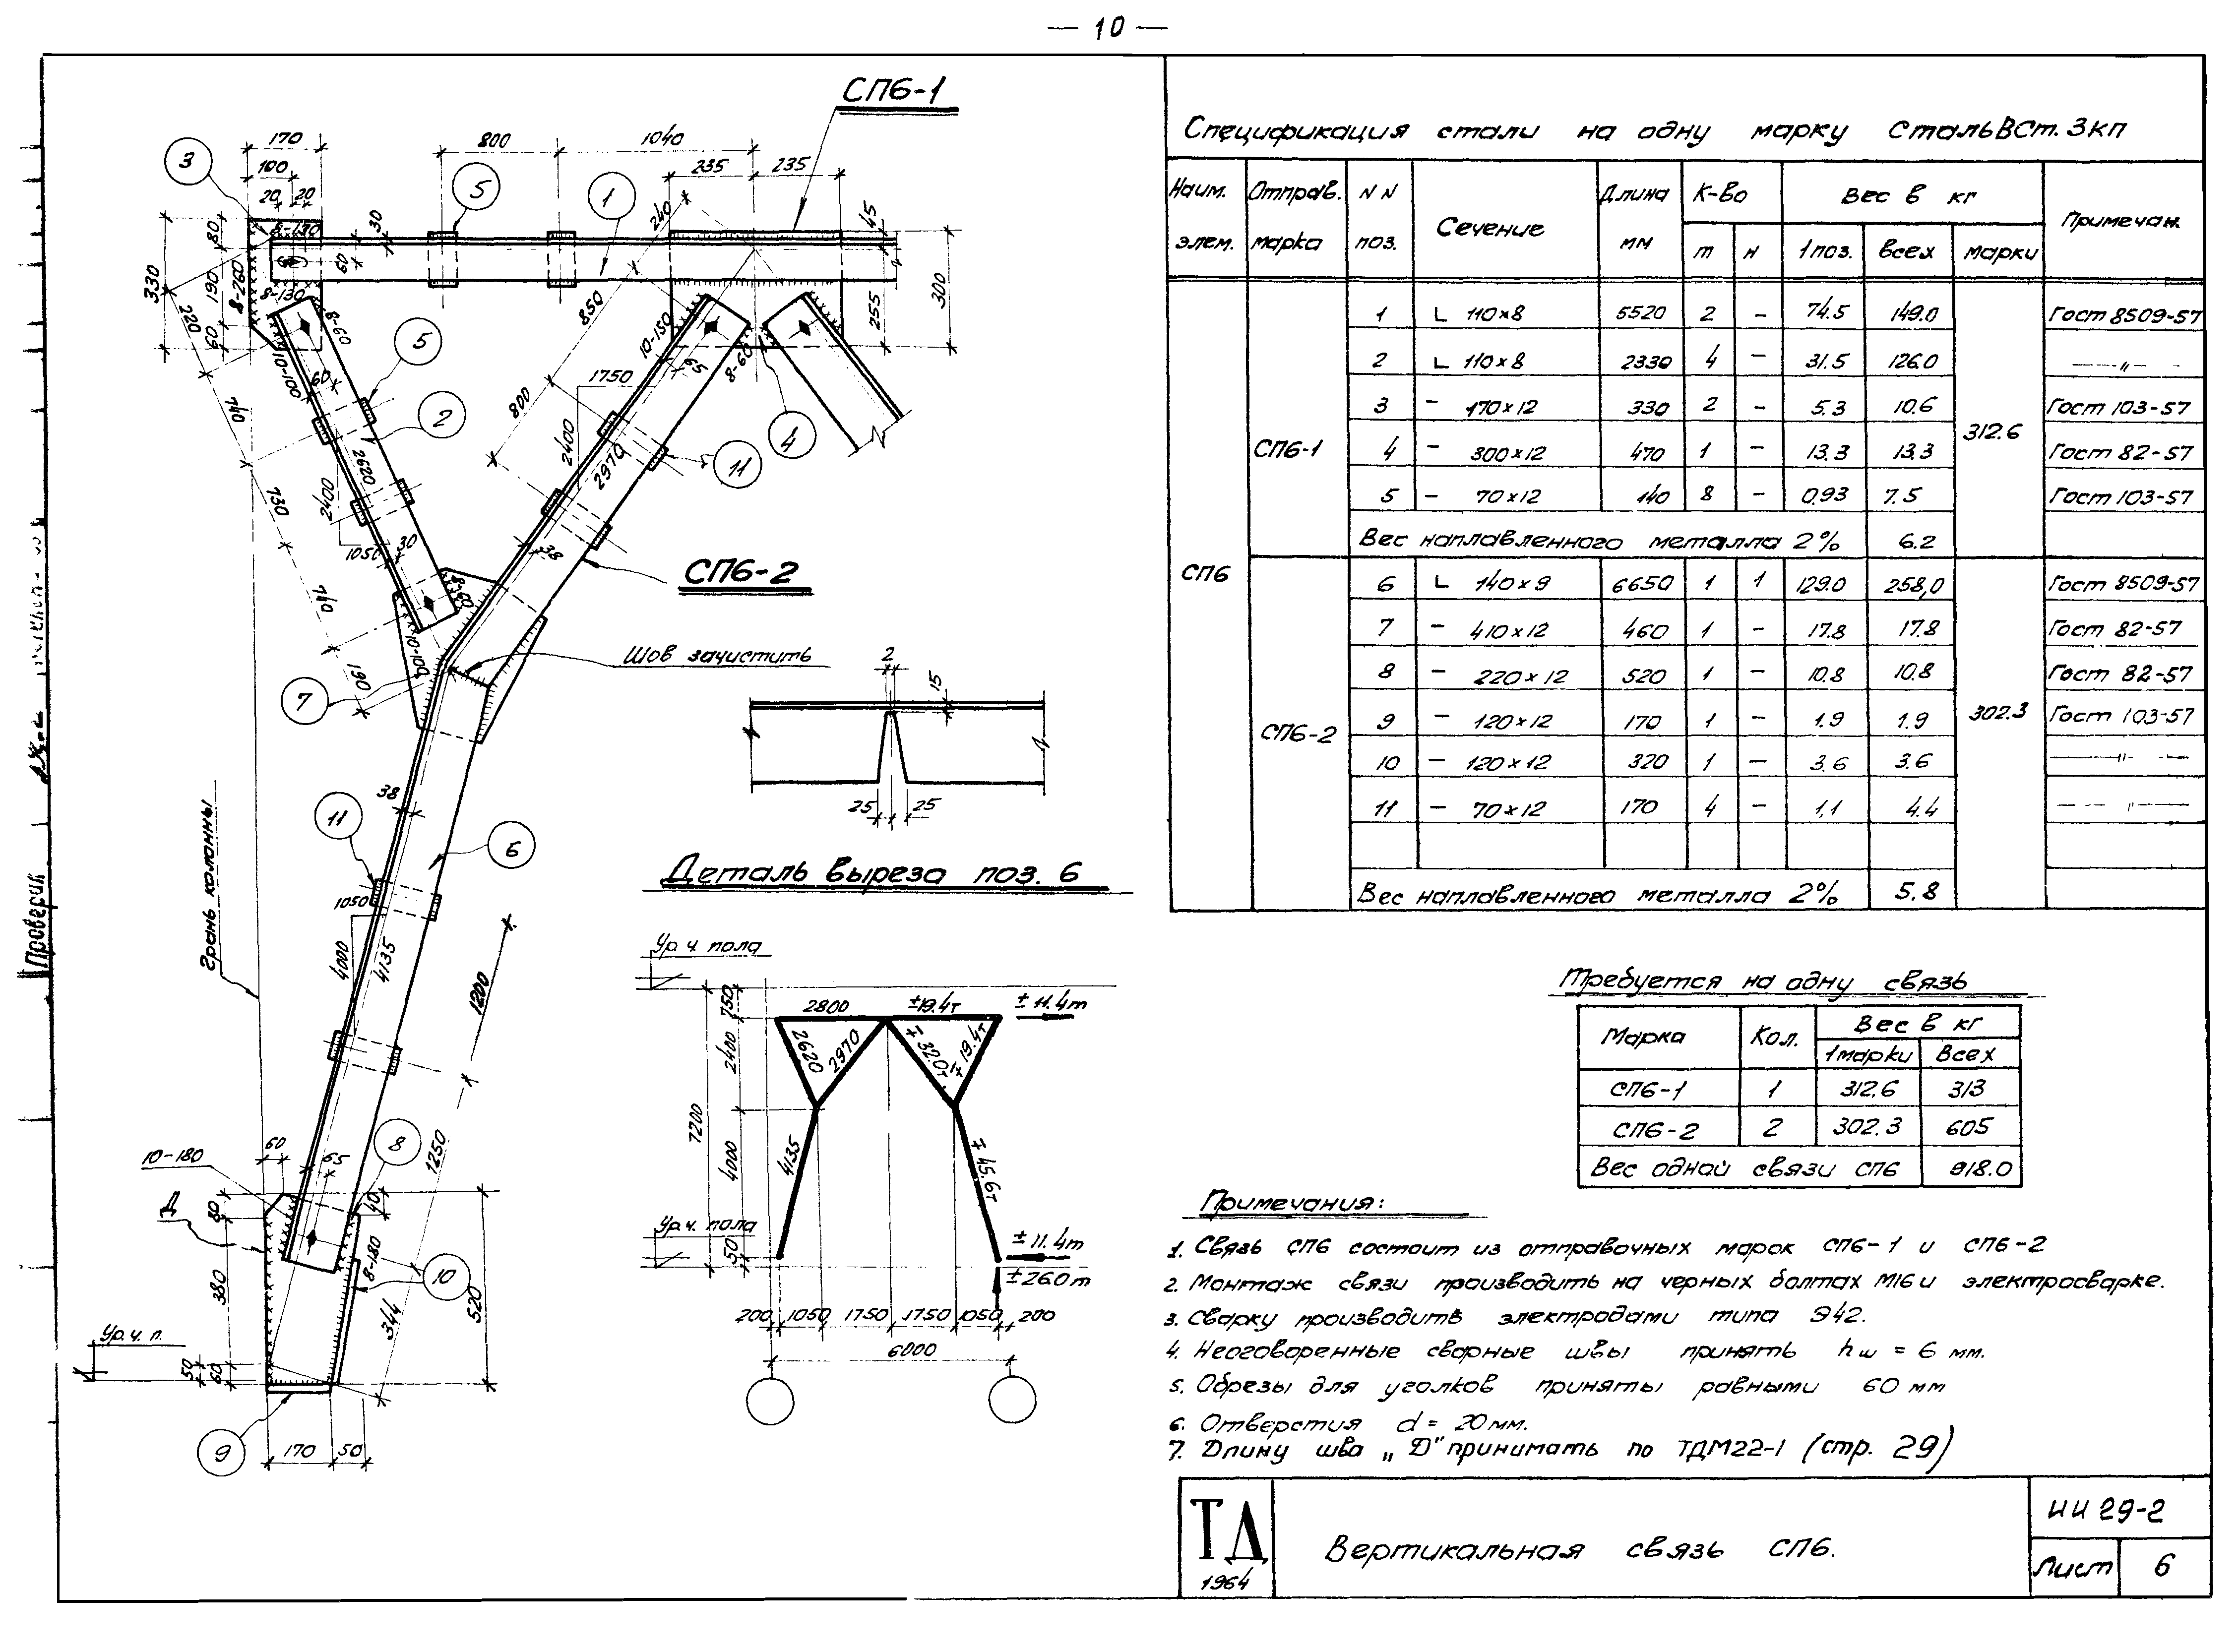 — 10 —
СП6-1
170
100
20 20
800
1040
235 235
3
5
1
30
240
45
80
8-170
330
190
8-260
60
60
8-130
8-60
220
60
850
300
255
10-150
65
8-60
5
10-100
60
1750
800
740
2
4
11
2620
2400
2400
2970
730
1050
30
38
СП6-2
740
8-60
10-100
190
7
Шов зачистить
2
15
25 25
Деталь выреза поз. 6
38
11
6
Грань колонны
1050
4000
4135
1200
60
65
8
10-180
Д
80
40
1250
8-180
10
380
344
520
Ур. ч. п.
50
60
9
170 50
Ур. ч. пола
750
2800
±19.4т
±11.4т
2620
2970
±32.0т
∓19.4т
2400
7200
4000
4135
∓45.6т
Ур. ч. пола
50
±11.4т
±26.0т
200 1050 1750 1750 1050 200
6000
Проверил
Спецификация стали на одну марку Сталь ВСт. 3кп
Наим. элем. Отправ. марка NN поз. Сечение Длина мм К-во т н Вес в кг 1 поз. всех марки Примечан.
СП6 СП6-1 312.6
1 L 110×8 5520 2 - 74.5 149.0 Гост 8509-57
2 L 110×8 2330 4 - 31.5 126.0 —〃—
3 - 170×12 330 2 - 5.3 10.6 Гост 103-57
4 - 300×12 470 1 - 13.3 13.3 Гост 82-57
5 - 70×12 140 8 - 0.93 7.5 Гост 103-57
Вес наплавленного металла 2% 6.2
СП6-2 302.3
6 L 140×9 6650 1 1 129.0 258,0 Гост 8509-57
7 - 410×12 460 1 - 17.8 17.8 Гост 82-57
8 - 220×12 520 1 - 10.8 10.8 Гост 82-57
9 - 120×12 170 1 - 1.9 1.9 Гост 103-57
10 - 120×12 320 1 - 3.6 3.6 —〃—
11 - 70×12 170 4 - 1,1 4.4 —〃—
Вес наплавленного металла 2% 5.8
Требуется на одну связь
Марка Кол. Вес в кг
1 марки Всех
СП6-1 1 312.6 313
СП6-2 2 302.3 605
Вес одной связи СП6 918.0
Примечания:
1. Связь СП6 состоит из отправочных марок СП6-1 и СП6-2
2. Монтаж связи производить на черных болтах М16 и электросварке.
3. Сварку производить электродами типа Э42.
4. Неоговоренные сварные швы принять hш = 6 мм.
5. Обрезы для уголков приняты равными 60 мм
6. Отверстия d = 20 мм.
7. Длину шва „Д" принимать по ТДМ22-1 (стр. 29)
ТД
1964
Вертикальная связь СП6.
ИИ 29-2
Лист 6